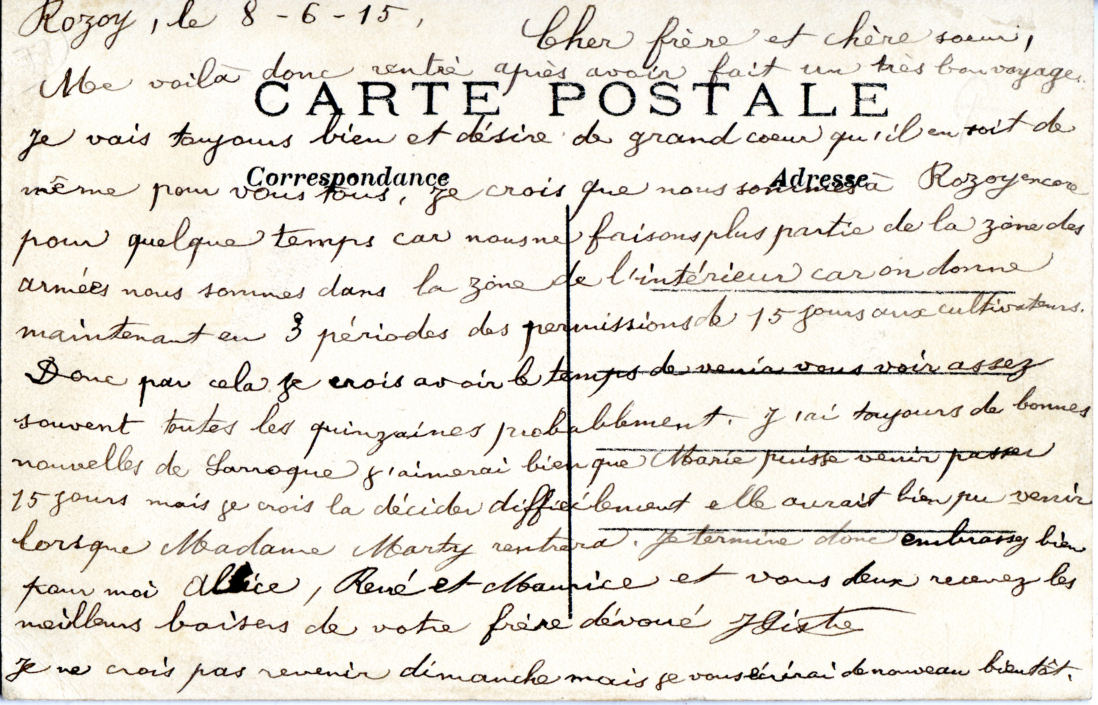 Rozoy, le 8-6-15,
Cher frère et chère soeur,
Me voilà donc rentré après avoir fait un très bon voyage.
CARTE POSTALE
Je vais toujours bien et désire de grand coeur qu'il en soit de
Correspondance
Adresse
même pour vous tous, je crois que nous sommes à Rozoy encore
pour quelque temps car nous ne faisons plus partie de la zône des
armées nous sommes dans la zône de l'intérieur car on donne
maintenant en 3 périodes des permissions de 15 jours aux cultivateurs.
Donc par cela je crois avoir le temps de venir vous voir assez
souvent toutes les quinzaines probablement. J'ai toujours de bonnes
nouvelles de Larroque j'aimerai bien que Marie puisse venir passer
15 jours mais je crois la décider difficilement elle aurait bien pu venir
lorsque Madame Marty rentrera. Je termine donc embrassez bien
pour moi Alice, René et Maurice et vous deux recevez les
meilleurs baisers de votre frère dévoué
Je ne crois pas revenir dimanche mais je vous écrirai de nouveau bientôt.